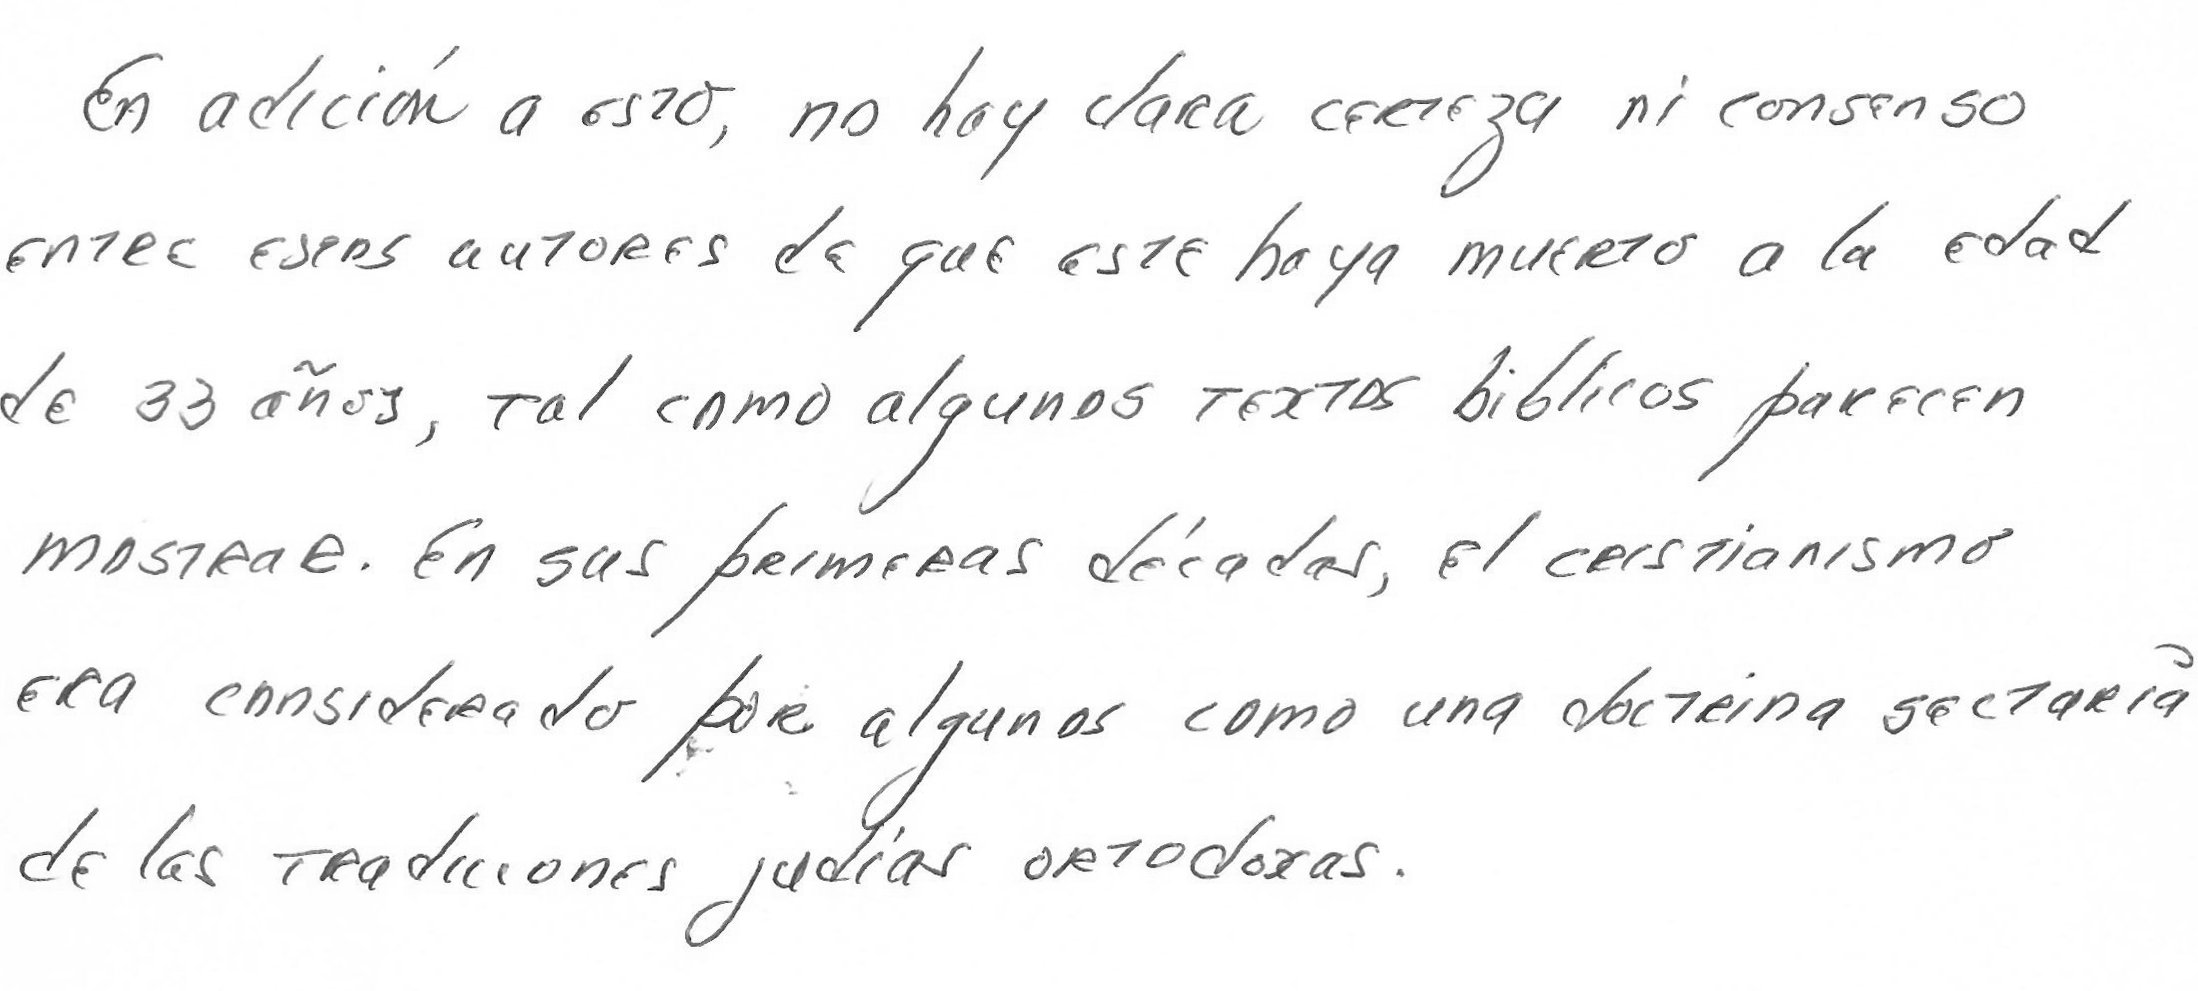 En adición a esto, no hay clara certeza ni consenso
entre esos autores de que este haya muerto a la edad
de 33 años, tal como algunos textos bíblicos parecen
mostrar. En sus primeras décadas, el cristianismo
era considerado por algunos como una doctrina sectaria
de las tradiciones judías ortodoxas.